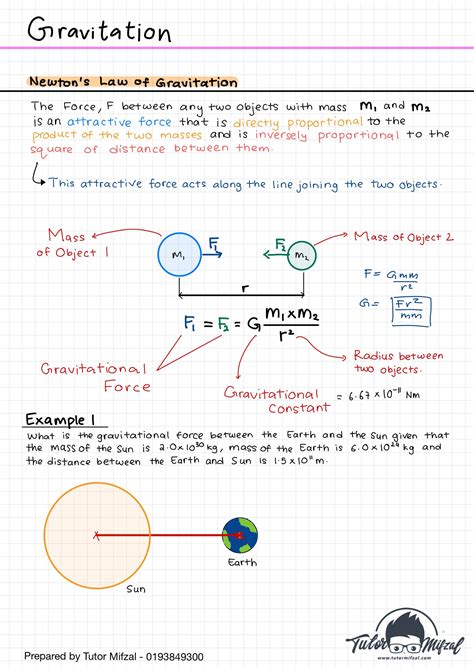 Gravitation
Newton's Law of Gravitation
The Force, F between any two objects with mass m₁ and m₂
is an attractive force that is directly proportional to the
product of the two masses and is inversely proportional to the
square of distance between them.
This attractive force acts along the line joining the two objects.
Mass
of Object 1
m₁
F₁
F₂
m₂
Mass of Object 2
r
F = Gmm/r²
G = Fr²/mm
F₁ = F₂ = G m₁×m₂/r²
Gravitational
Force
Gravitational
Constant
= 6.67 × 10⁻¹¹ Nm
Radius between
two objects.
Example 1
What is the gravitational force between the Earth and the Sun given that
the mass of the Sun is 2.0×10³⁰ kg, mass of the Earth is 6.0×10²⁴ kg and
the distance between the Earth and Sun is 1.5×10¹¹ m.
Sun
Earth
Prepared by Tutor Mifzal - 0193849300
Tutor Mifzal
www.tutormifzal.com